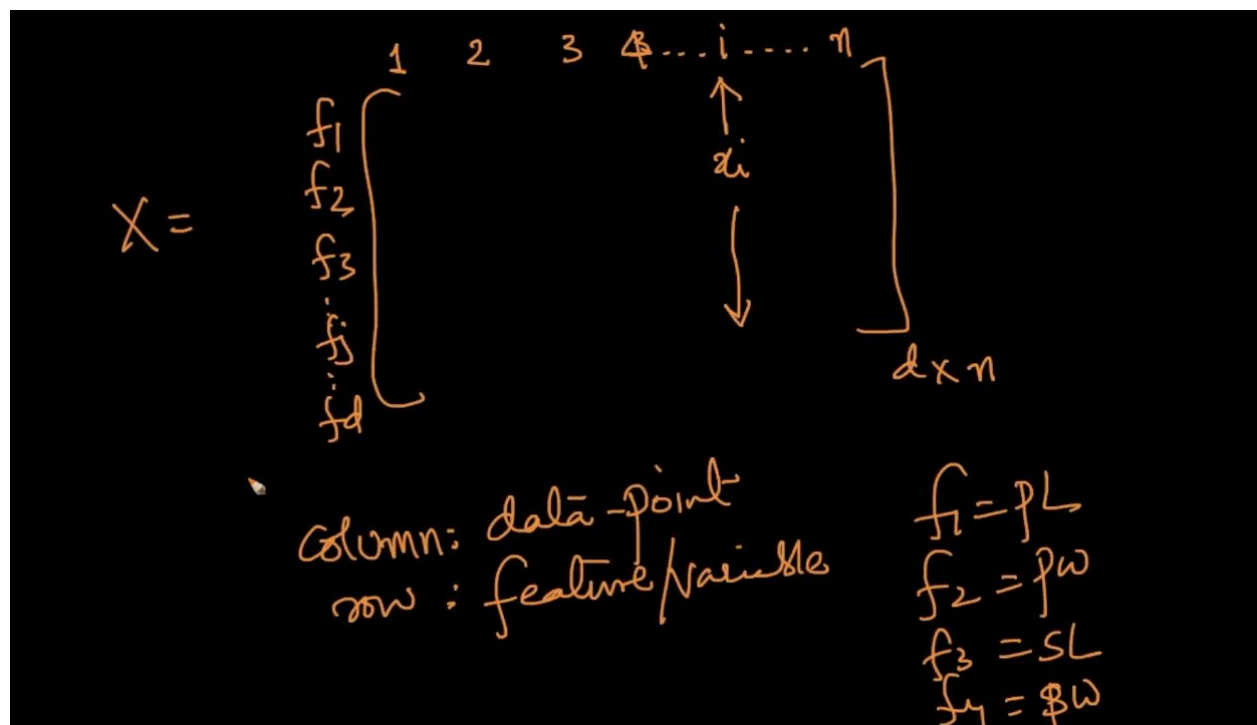 1 2 3 4...i....n
f1
f2
xi
X=
f3
.
fj
:
fd
dxn
column: data-point
row: feature/variable
f1=PL
f2=PW
f3=SL
f4=SW